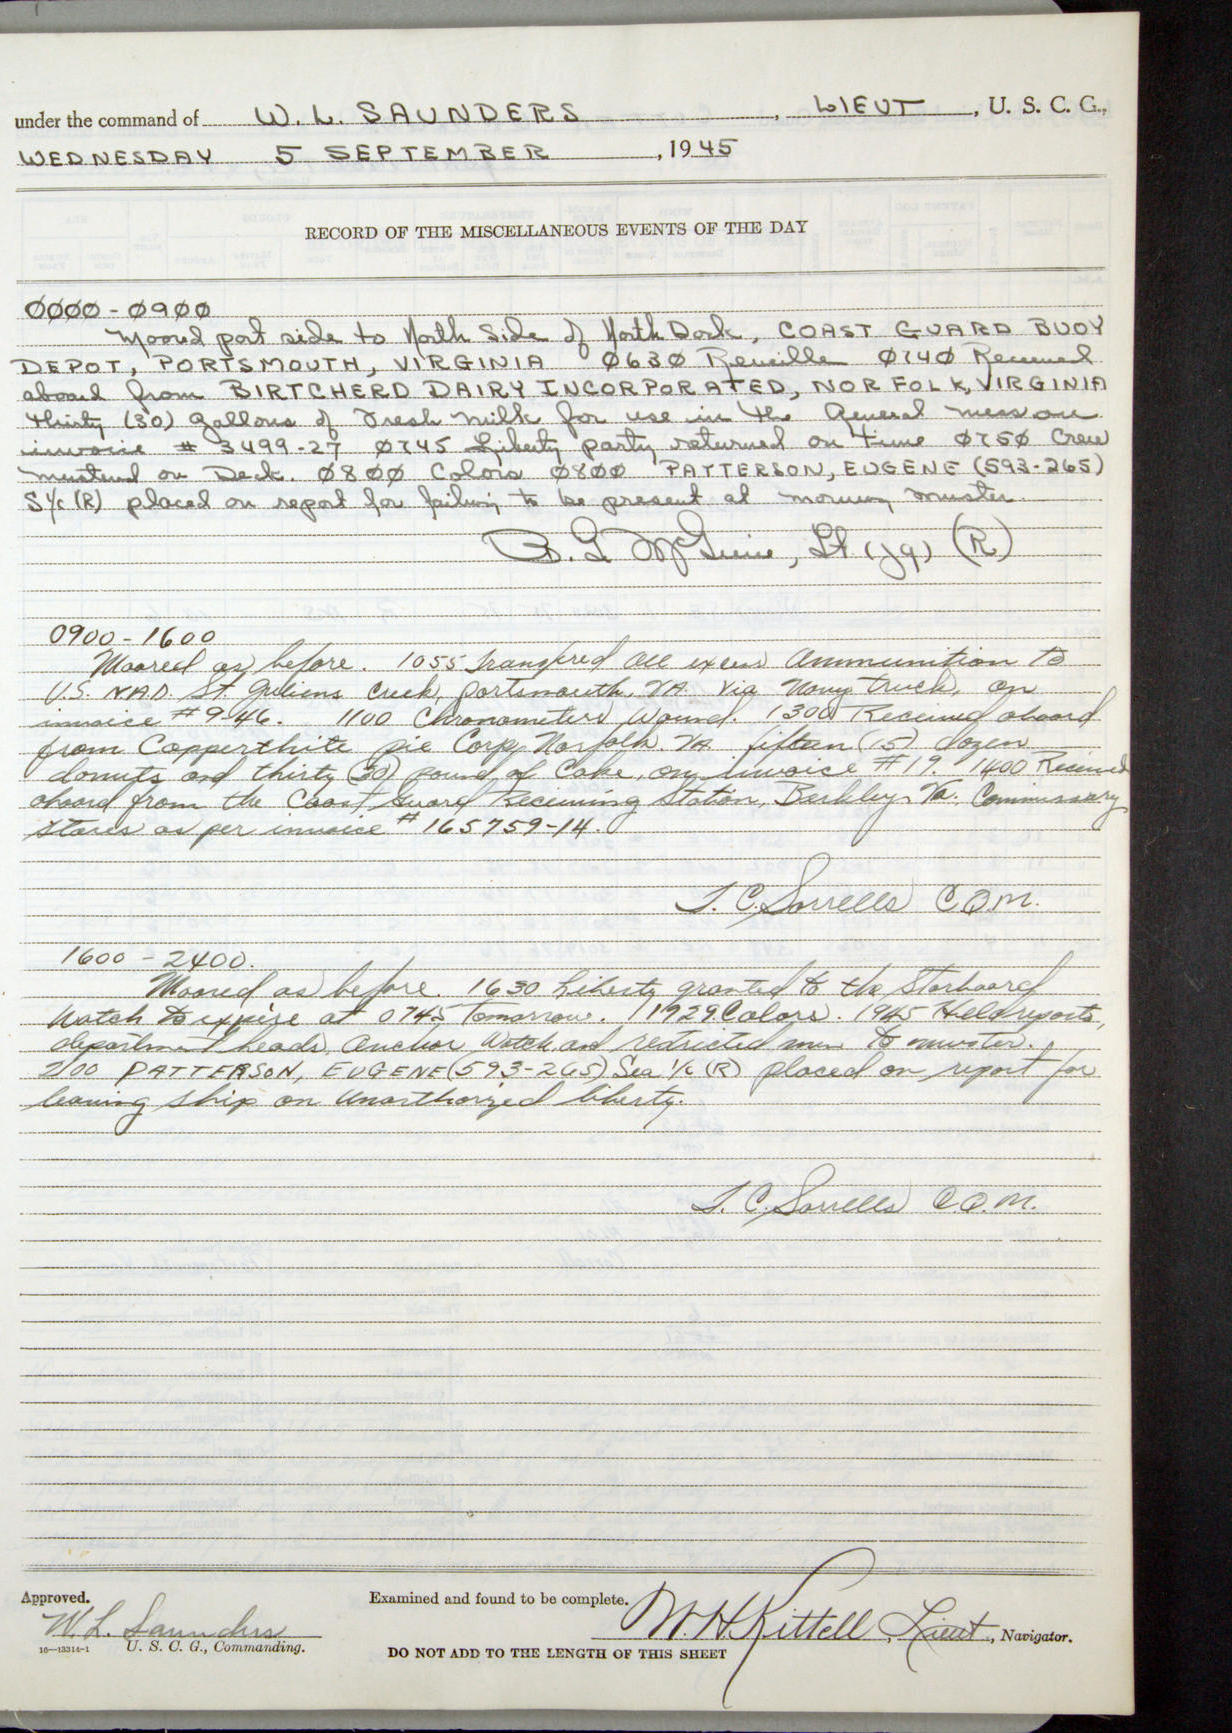 under the command of W. L. SAUNDERS, LIEUT, U. S. C. G.,
WEDNESDAY 5 SEPTEMBER, 1945
RECORD OF THE MISCELLANEOUS EVENTS OF THE DAY
0000 - 0900
Moored port side to North Side of North Dock, COAST GUARD BUOY
DEPOT, PORTSMOUTH, VIRGINIA 0630 Reveille 0740 Received
aboard from BIRTCHERD DAIRY INCORPORATED, NORFOLK, VIRGINIA
thirty (30) gallons of Fresh Milk for use in the General mess on
invoice # 3499-27 0745 Liberty party returned on time 0750 Crew
mustered on Deck. 0800 Colors 0800 PATTERSON, EUGENE (593-265)
S1/c (R) placed on report for failing to be present at morning muster.
G. McGuire, Lt (jg) (R)
0900 - 1600
Moored as before. 1055 Transfered all excess Ammunition to
U.S. NAD. St. Juliens Creek, Portsmouth, VA. via Navy truck, on
invoice #9-46. 1100 Chronometers Wound. 1300 Received aboard
from Copperthite pie Corp, Norfolk. Va. fifteen (15) dozen
donuts and thirty (30) pound of Cake, on invoice #19. 1400 Received
aboard from the Coast Guard Receiving Station, Berkley, Va. Commissary
stores as per invoice # 165759-14.
T. C. Sorrells C.Q.M.
1600 - 2400.
Moored as before. 1630 Liberty granted to the Starboard
Watch to expire at 0745 tomorrow. 1929 Colors. 1945 Held reports,
department heads, Anchor Watch, and restricted men to muster.
2100 PATTERSON, EUGENE (593-265) Sea 1/c (R) placed on report for
leaving ship on Unauthorized liberty.
T. C. Sorrells C.Q.M.
Approved. Examined and found to be complete.
W. L. Saunders W. H. Kittell, Lieut, Navigator.
16—13314-1 U. S. C. G., Commanding.
DO NOT ADD TO THE LENGTH OF THIS SHEET